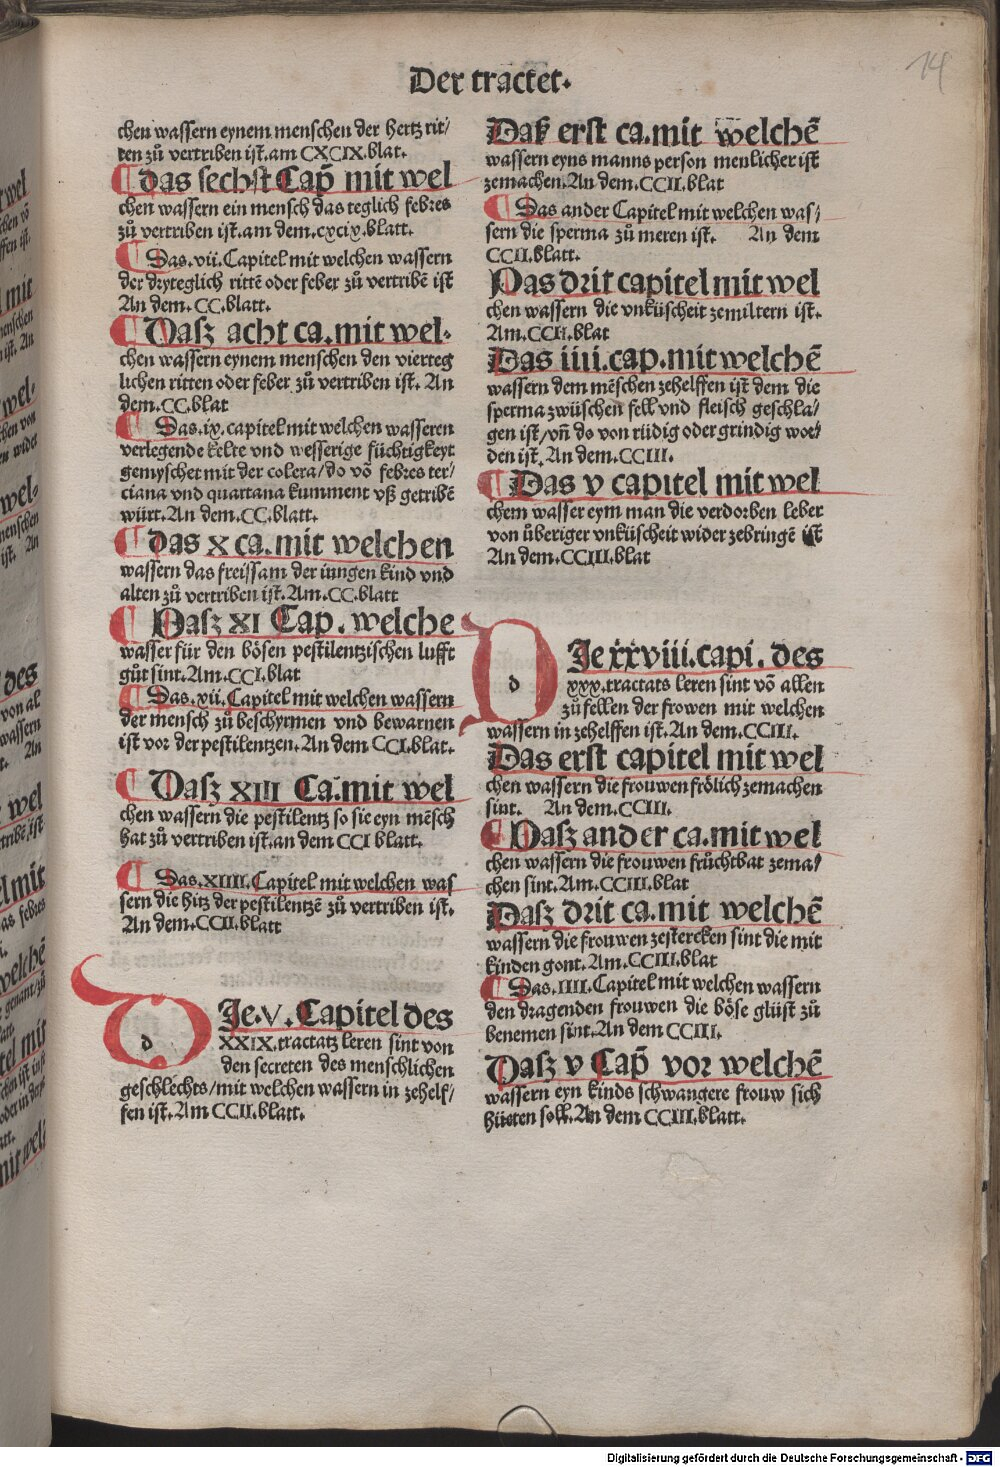 Der tractet.
14
chen wassern eynem menschen der hertz rit/
ten zů vertriben ist. am CXCIX. blat.
das sechst Cap̄ mit wel
chen wassern ein mensch das teglich febres
zů vertriben ist. am dem. cxcix. blatt.
Das. vii. Capitel mit welchen wassern
der dryteglich rittē oder feber zů vertribē ist
An dem. CC. blatt.
Dasz acht ca. mit wel-
chen wassern eynem menschen den vierteg
lichen ritten oder feber zů vertriben ist. An
dem. CC. blat
Das. ix. capitel mit welchen wasseren
verlegende kelte vnd wesserige füchtigkeyt
gemyschet mit der colera/ do vō febres ter/
ciana vnd quartana kumment vß getribē
würt. An dem. CC. blatt.
das X ca. mit welchen
wassern das freissam der iungen kind vnd
alten zů vertriben ist. Am. CC. blatt
Dasz XI Cap. welche
wasser für den bösen pestilentzischen lufft
gůt sint. Am. CCI. blat
Das. xii. Capitel mit welchen wassern
der mensch zů beschyrmen vnd bewarnen
ist vor der pestilentzen. An dem CCI. blat.
Dasz XIII Ca. mit wel
chen wassern die pestilentz so sie eyn mēsch
hat zů vertriben ist. an dem CCI blatt.
Das. XIIII. Capitel mit welchen was
sern die hitz der pestilentzē zů vertriben ist.
An dem. CCII. blatt
d
Je. V. Capitel des
XXIX. tractatz leren sint von
den secreten des menschlichen
geschlechts/ mit welchen wassern in zehelf/
fen ist. Am CCII. blatt.
Daß erst ca. mit welchē
wassern eyns manns person menlicher ist
zemachen. An dem. CCII. blat
Das ander Capitel mit welchen was/
sern die sperma zů meren ist. An dem
CCII. blatt.
Das drit capitel mit wel
chen wassern die vnküscheit zemiltern ist.
Am. CCII. blat
Das iiii. cap. mit welchē
wassern dem mēschen zehelffen ist dem die
sperma zwüschen fell vnd fleisch geschla/
gen ist/ vn̄ do von rüdig oder grindig wor/
den ist. An dem. CCIII.
Das v capitel mit wel
chem wasser eym man die verdorben leber
von ůberiger vnküscheit wider zebringē ist
An dem. CCIII. blat
d
Je xxviii. capi. des
xxx. tractats leren sint vō allen
zůfellen der frowen mit welchen
wassern in zehelffen ist. An dem. CCIII.
Das erst capitel mit wel
chen wassern die frouwen frölich zemachen
sint. An dem. CCIII.
Dasz ander ca. mit wel
chen wassern die frouwen frůchtbat zema/
chen sint. Am. CCIII. blat
Dasz drit ca. mit welchē
wassern die frouwen zestercken sint die mit
kinden gont. Am. CCIII. blat
Das. IIII. Capitel mit welchen wassern
den dragenden frouwen die böse glüst zů
benemen sint. An dem CCIII.
Dasz v Cap̄ vor welchē
wassern eyn kinds schwangere frouw sich
hüeten soll. An dem CCIII. blatt.
Digitalisierung gefördert durch die Deutsche Forschungsgemeinschaft - DFG